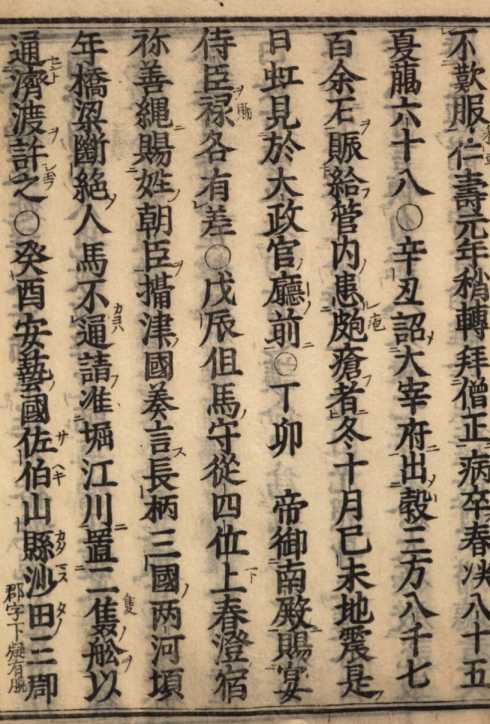 不歎服仁壽元年稍轉拜僧正病卒春秋八十五
夏﨟六十八〇辛丑詔大宰府出穀三万八千七
百余石賑給管内患皰瘡者冬十月己未地震是
日虹見於大政官廳前〇丁卯　帝御南殿賜宴
侍臣祿各有差〇戊辰但馬守從四位上春澄宿
祢善繩賜姓朝臣攝津國奏言長柄三國両河頃
年橋梁斷絶人馬不通請准堀江川置二隻舩以
通濟渡許之〇癸酉安藝國佐伯山縣沙田三郡
郡字下疑有脱